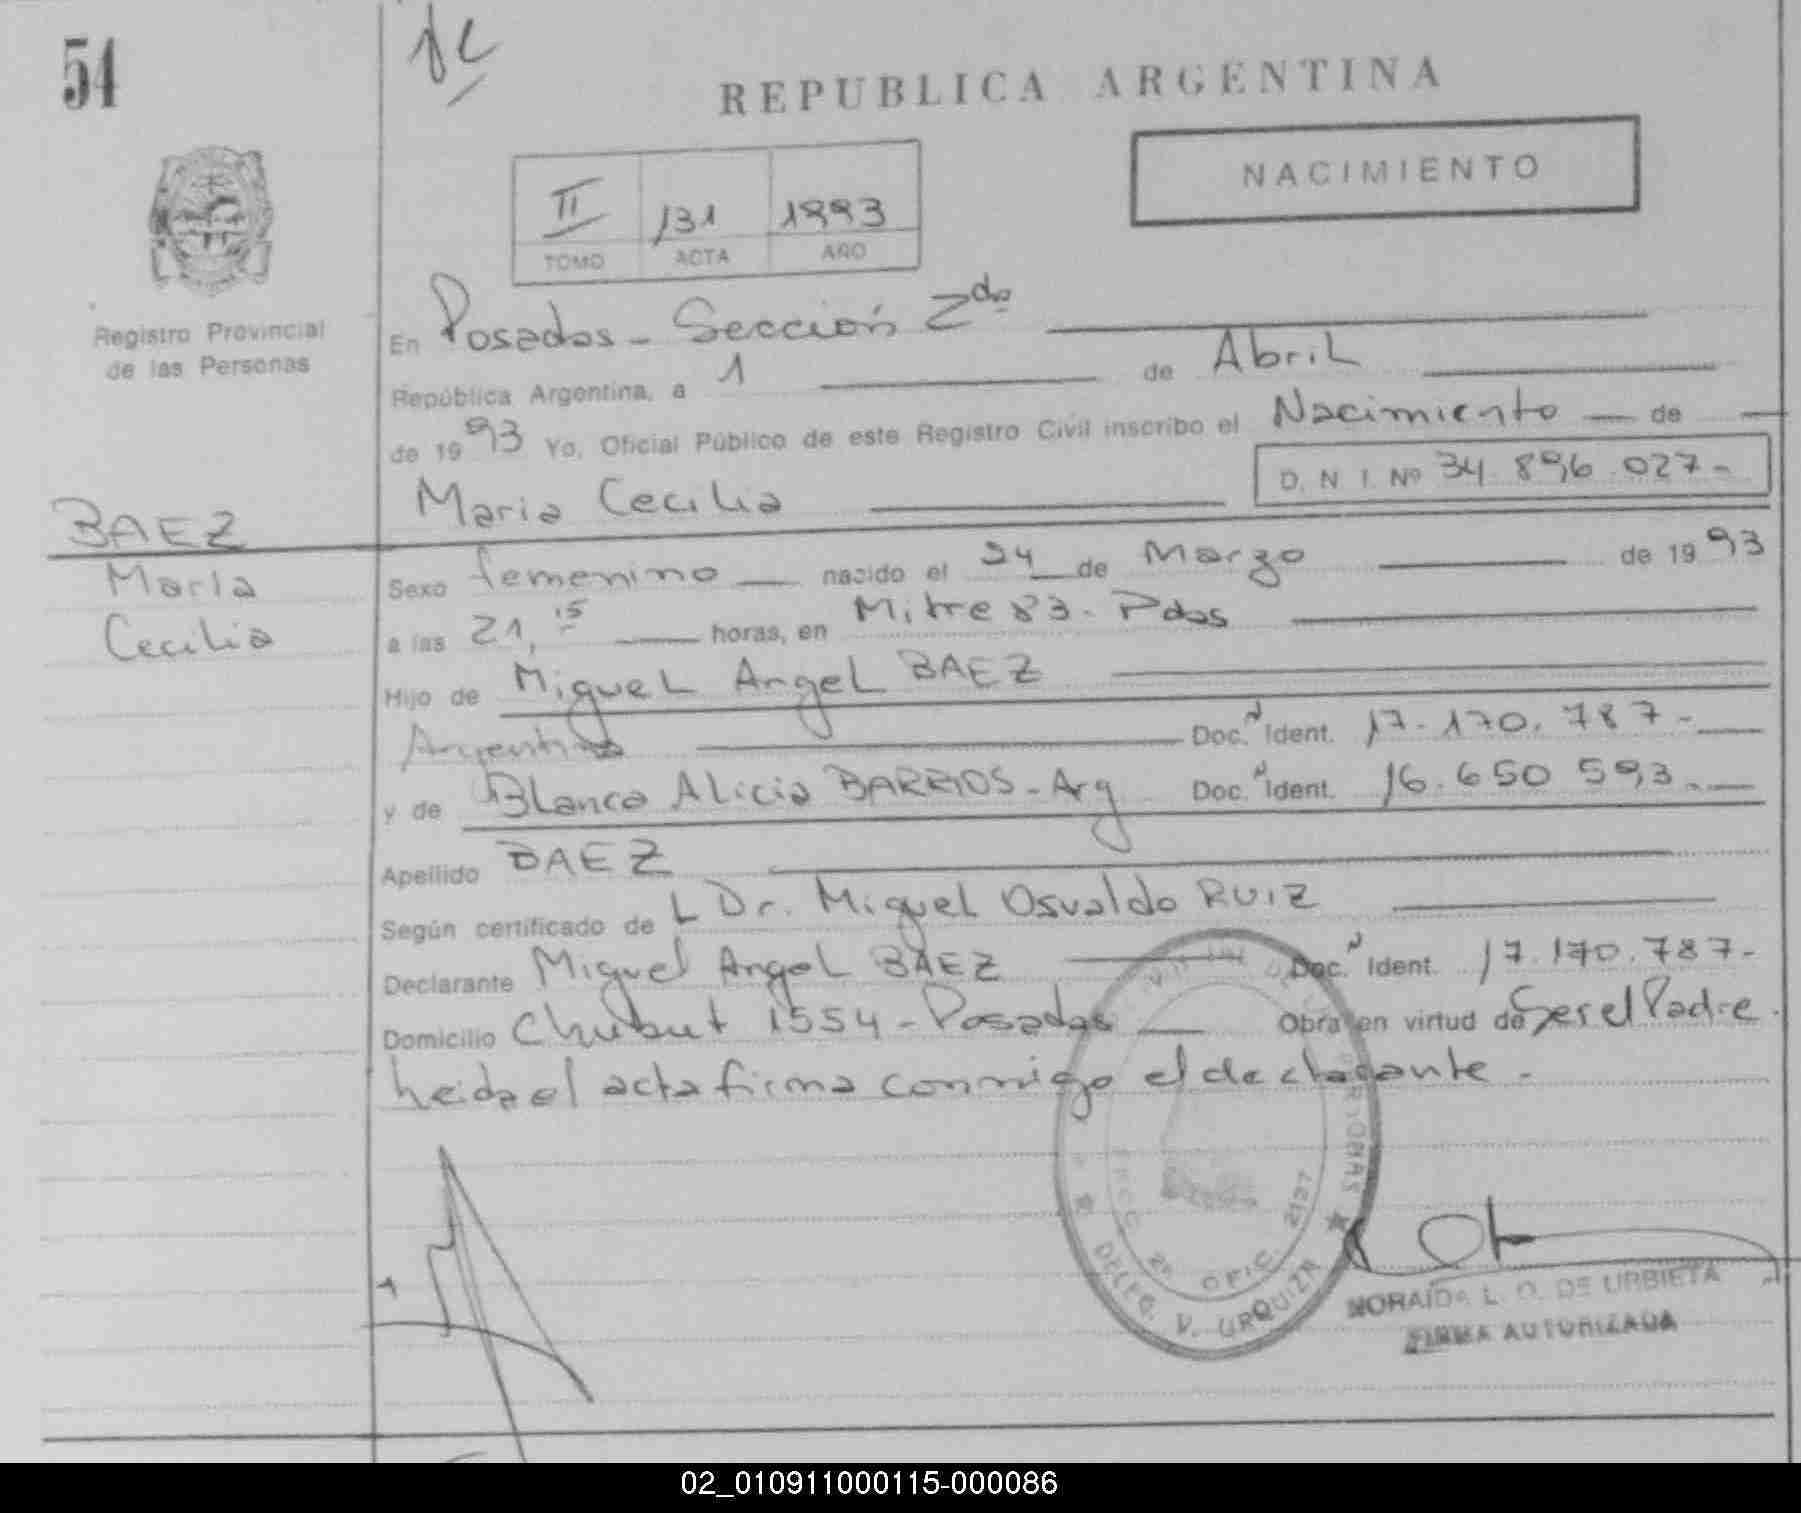 54
REPUBLICA ARGENTINA
NACIMIENTO
II 131 1993
TOMO ACTA AÑO
Registro Provincial
de las Personas
En Posadas - Sección 2da
República Argentina, a 1 de Abril
de 1993 Yo, Oficial Público de este Registro Civil inscribo el Nacimiento de
Maria Cecilia D. N. I. Nº 34.896.027-
BAEZ
Maria
Cecilia
Sexo femenino nacido el 24 de Marzo de 1993
a las 21,15 horas, en Mitre 83 - Pdas
Hijo de Miguel Angel BAEZ
Argentino Doc.N Ident. 17.170.787-
y de Blanca Alicia BARRIOS - Arg Doc.N Ident. 16.650.593-
Apellido BAEZ
Según certificado de L Dr. Miguel Osvaldo RUIZ
Declarante Miguel Angel BAEZ Doc.N Ident. 17.170.787-
Domicilio Chubut 1554 - Posadas Obra en virtud de Ser el Padre.
Leida el acta firma conmigo el declarante -
SECC. 2ª OFIC. 2127
DELEG. V. URQUIZA
NORAIDA L. O. DE URBIETA
FIRMA AUTORIZADA
02_010911000115-000086